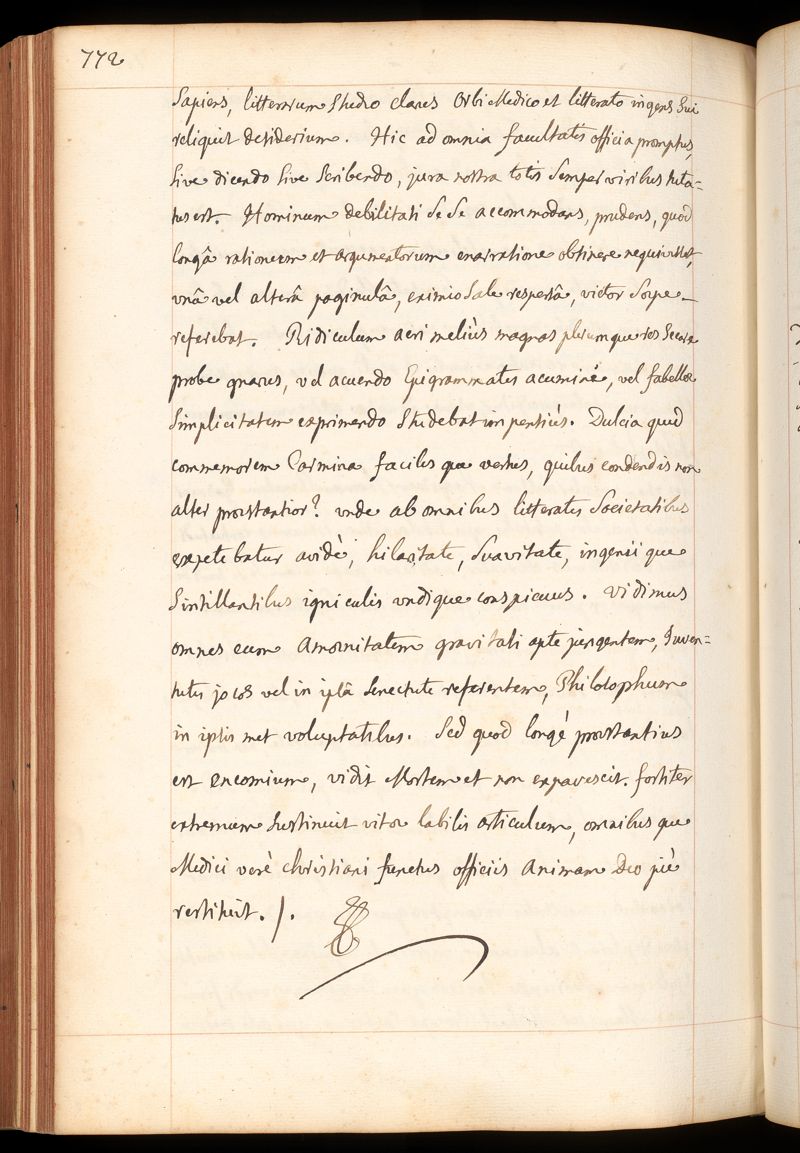 772
Sapiens, litterarum Studio clarus Orbi Medico et litterato ingens Sui
reliquit desiderium. Hic ad omnia facultatis officia promptus,
Sive dicendo Sive Scribendo, jura nostra totis Semper viribus tuta=
tus est. Hominum debilitati Se Se accommodans, prudens, quod
longâ rationum et argumentorum enarratione obtinere nequivisset,
vnâ vel alterâ paginulâ, eximio Sale respersâ, victor Sæpe
referebat. Ridiculum acri meliùs magnas plerumque res Secare
probe gnarus, vel acuendo Epigrammatis acumine, vel fabellæ
Simplicitatem exprimendo Studebat impensiùs. Dulcia quid
commemorem Carmina faciles que versus, quibus condendis non
alter præstantior? vnde ab omnibus litteratis Societatibus
expetebatur avidè, hilaritate, Suavitate, ingenii que
Sintillantibus igniculis vndique conspicuus. Vidimus
omnes eum Amœnitatem gravitati apte jungentem, Juven=
tutis jocos vel in ipsâ Senectute referentem, Philosophum
in ipsis met voluptatibus. Sed quod longè præstantius
est encomium, vidit Mortem et non expavescit. fortiter
extremum Sustinuit vitæ labilis articulum, omnibus que
Medici verè christiani functus officiis Animam Deo piè
restituit. /.